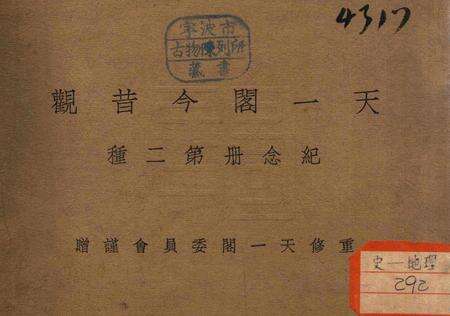 4317
寧波市
古物陳列所
藏書
天一閣今昔觀
紀念册第二種
重修天一閣委員會謹贈
史一地理
292